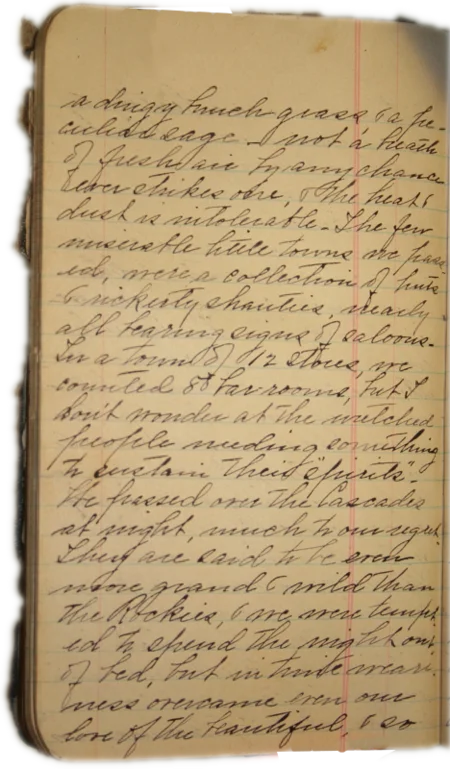 a dingy bunch grass & a pe-
culiar sage - not a breath
of fresh air by any chance
ever strikes one, & the heat &
dust is intolerable - The few
miserable little towns we pass-
ed, were a collection of huts
& rickerty shanties, nearly
all bearing signs of saloons -
In a town of 12 stores, we
counted 8 bar rooms, but I
don't wonder at the wretched
people needing something
to sustain their "spirits" -
We passed over the Cascades
at night, much to our regret.
They are said to be even
more grand & wild than
the Rockies, & we were tempt-
ed to spend the night out
of bed, but in time weari-
ness overcame even our
love of the beautiful, & so